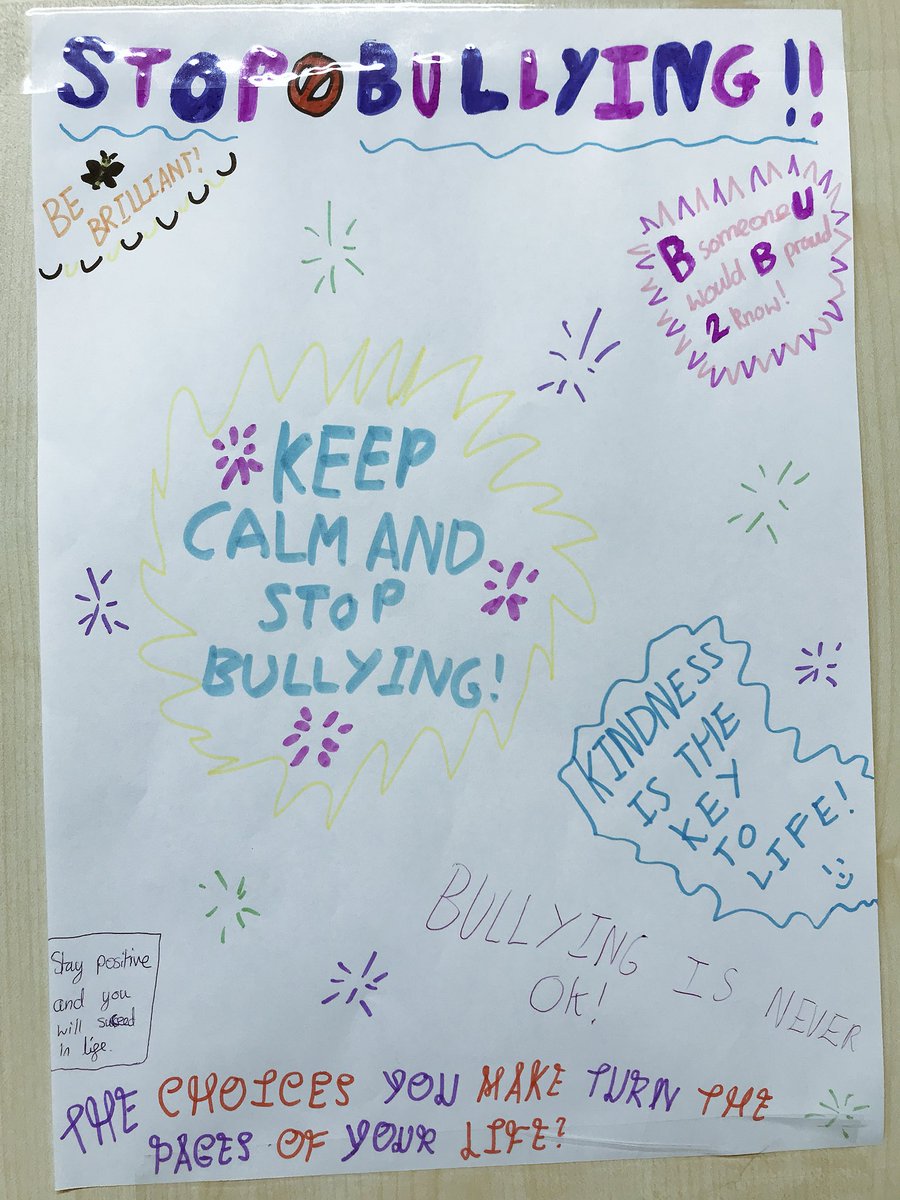 STOP BULLYING!!
BE
BRILLIANT!
B someone U
would B proud
2 know!
KEEP
CALM AND
STOP
BULLYING!
KINDNESS
IS THE
KEY
TO
LIFE!
BULLYING IS NEVER
OK!
Stay positive
and you
will succeed
in life.
THE CHOICES YOU MAKE TURN THE
PAGES OF YOUR LIFE?